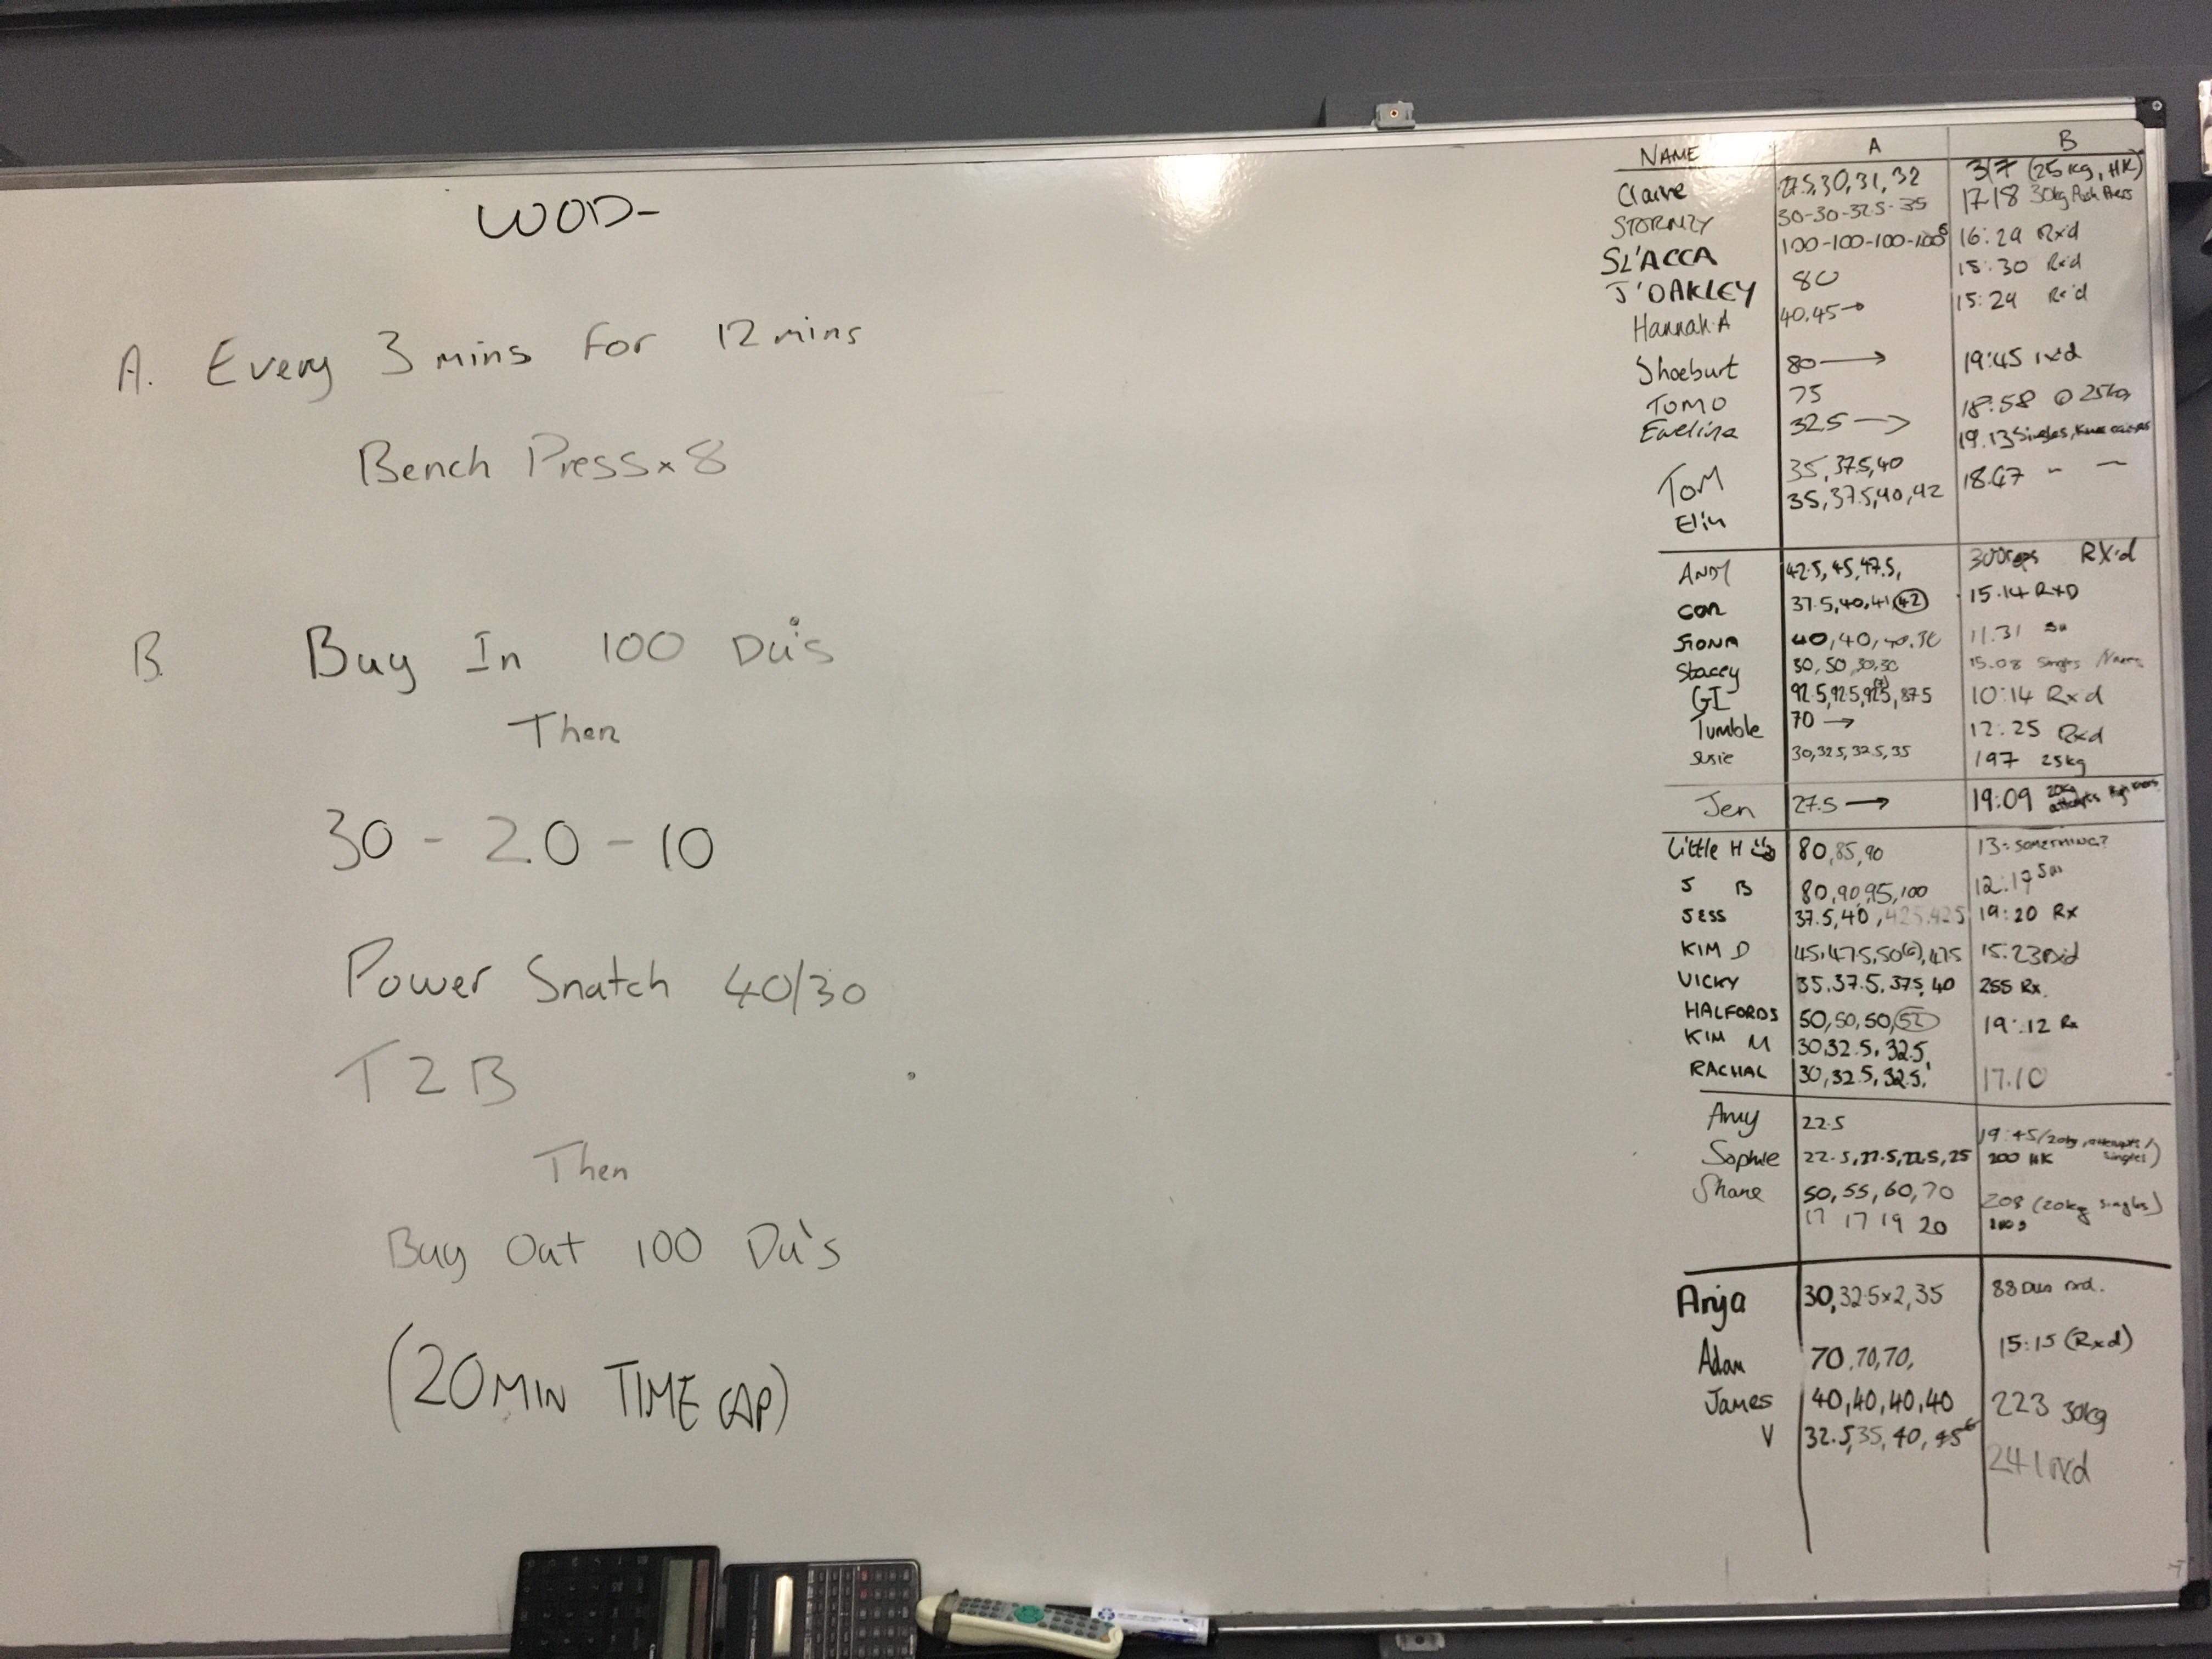 WOD-
A. Every 3 mins For 12 mins
Bench Press x 8
B. Buy In 100 Du's
Then
30 - 20 - 10
Power Snatch 40/30
T2B
Then
Buy Out 100 Du's
(20 MIN TIME CAP)
NAME A B
Claire 27.5, 30, 31, 32 317 (25kg, HK)
STORMZY 30-30-32.5-35 17.18 30kg Push Press
SL'ACCA 100-100-100-100 16:29 Rxd
J'OAKLEY 80 15:30 Rxd
Hannah.A 40.45→ 15:29 Rx'd
Shoeburt 80→ 19:45 rxd
TOMO 75 18:58 @ 25kg
Ewelina 32.5→ 19.13 Singles, Knee raises
TOM 35, 37.5, 40 18.47 " "
Elin 35, 37.5, 40, 42
ANDY 42.5, 45, 47.5, 300reps RX'd
CON 37.5, 40, 41, 42 15.14 RXD
FIONA 40, 40, 40, 30 11.31 su
Stacey 30, 50, 30, 30 15.08 Singles
GI 92.5, 92.5, 92.5, 87.5 10:14 Rxd
Tumble 70→ 12:25 Rxd
Susie 30, 32.5, 32.5, 35 197 25kg
Jen 27.5→ 19:09 20kg attempts High knees
Little H 80, 85, 90 13:SOMETHING?
J B 80, 90, 95, 100 12:17
JESS 37.5, 40, 42.5, 42.5 19:20 Rx
KIM D 45, 47.5, 50(6), 47.5 15:23 Rxd
VICKY 35, 37.5, 37.5, 40 255 Rx.
HALFORDS 50, 50, 50, 52 19:12 Rx
KIM M 30, 32.5, 32.5,
RACHAL 30, 32.5, 32.5, 17.10
Amy 22.5 19:45 (20kg, attempts/singles)
Sophie 22.5, 22.5, 22.5, 25 200 HK
Shane 50, 55, 60, 70 208 (20kg singles)
17 17 19 20
Anja 30, 32.5x2, 35 88 Dus rxd.
Adam 70, 70, 70, 15:15 (Rxd)
James 40, 40, 40, 40 223 30kg
V 32.5, 35, 40, 45 6 241 rxd